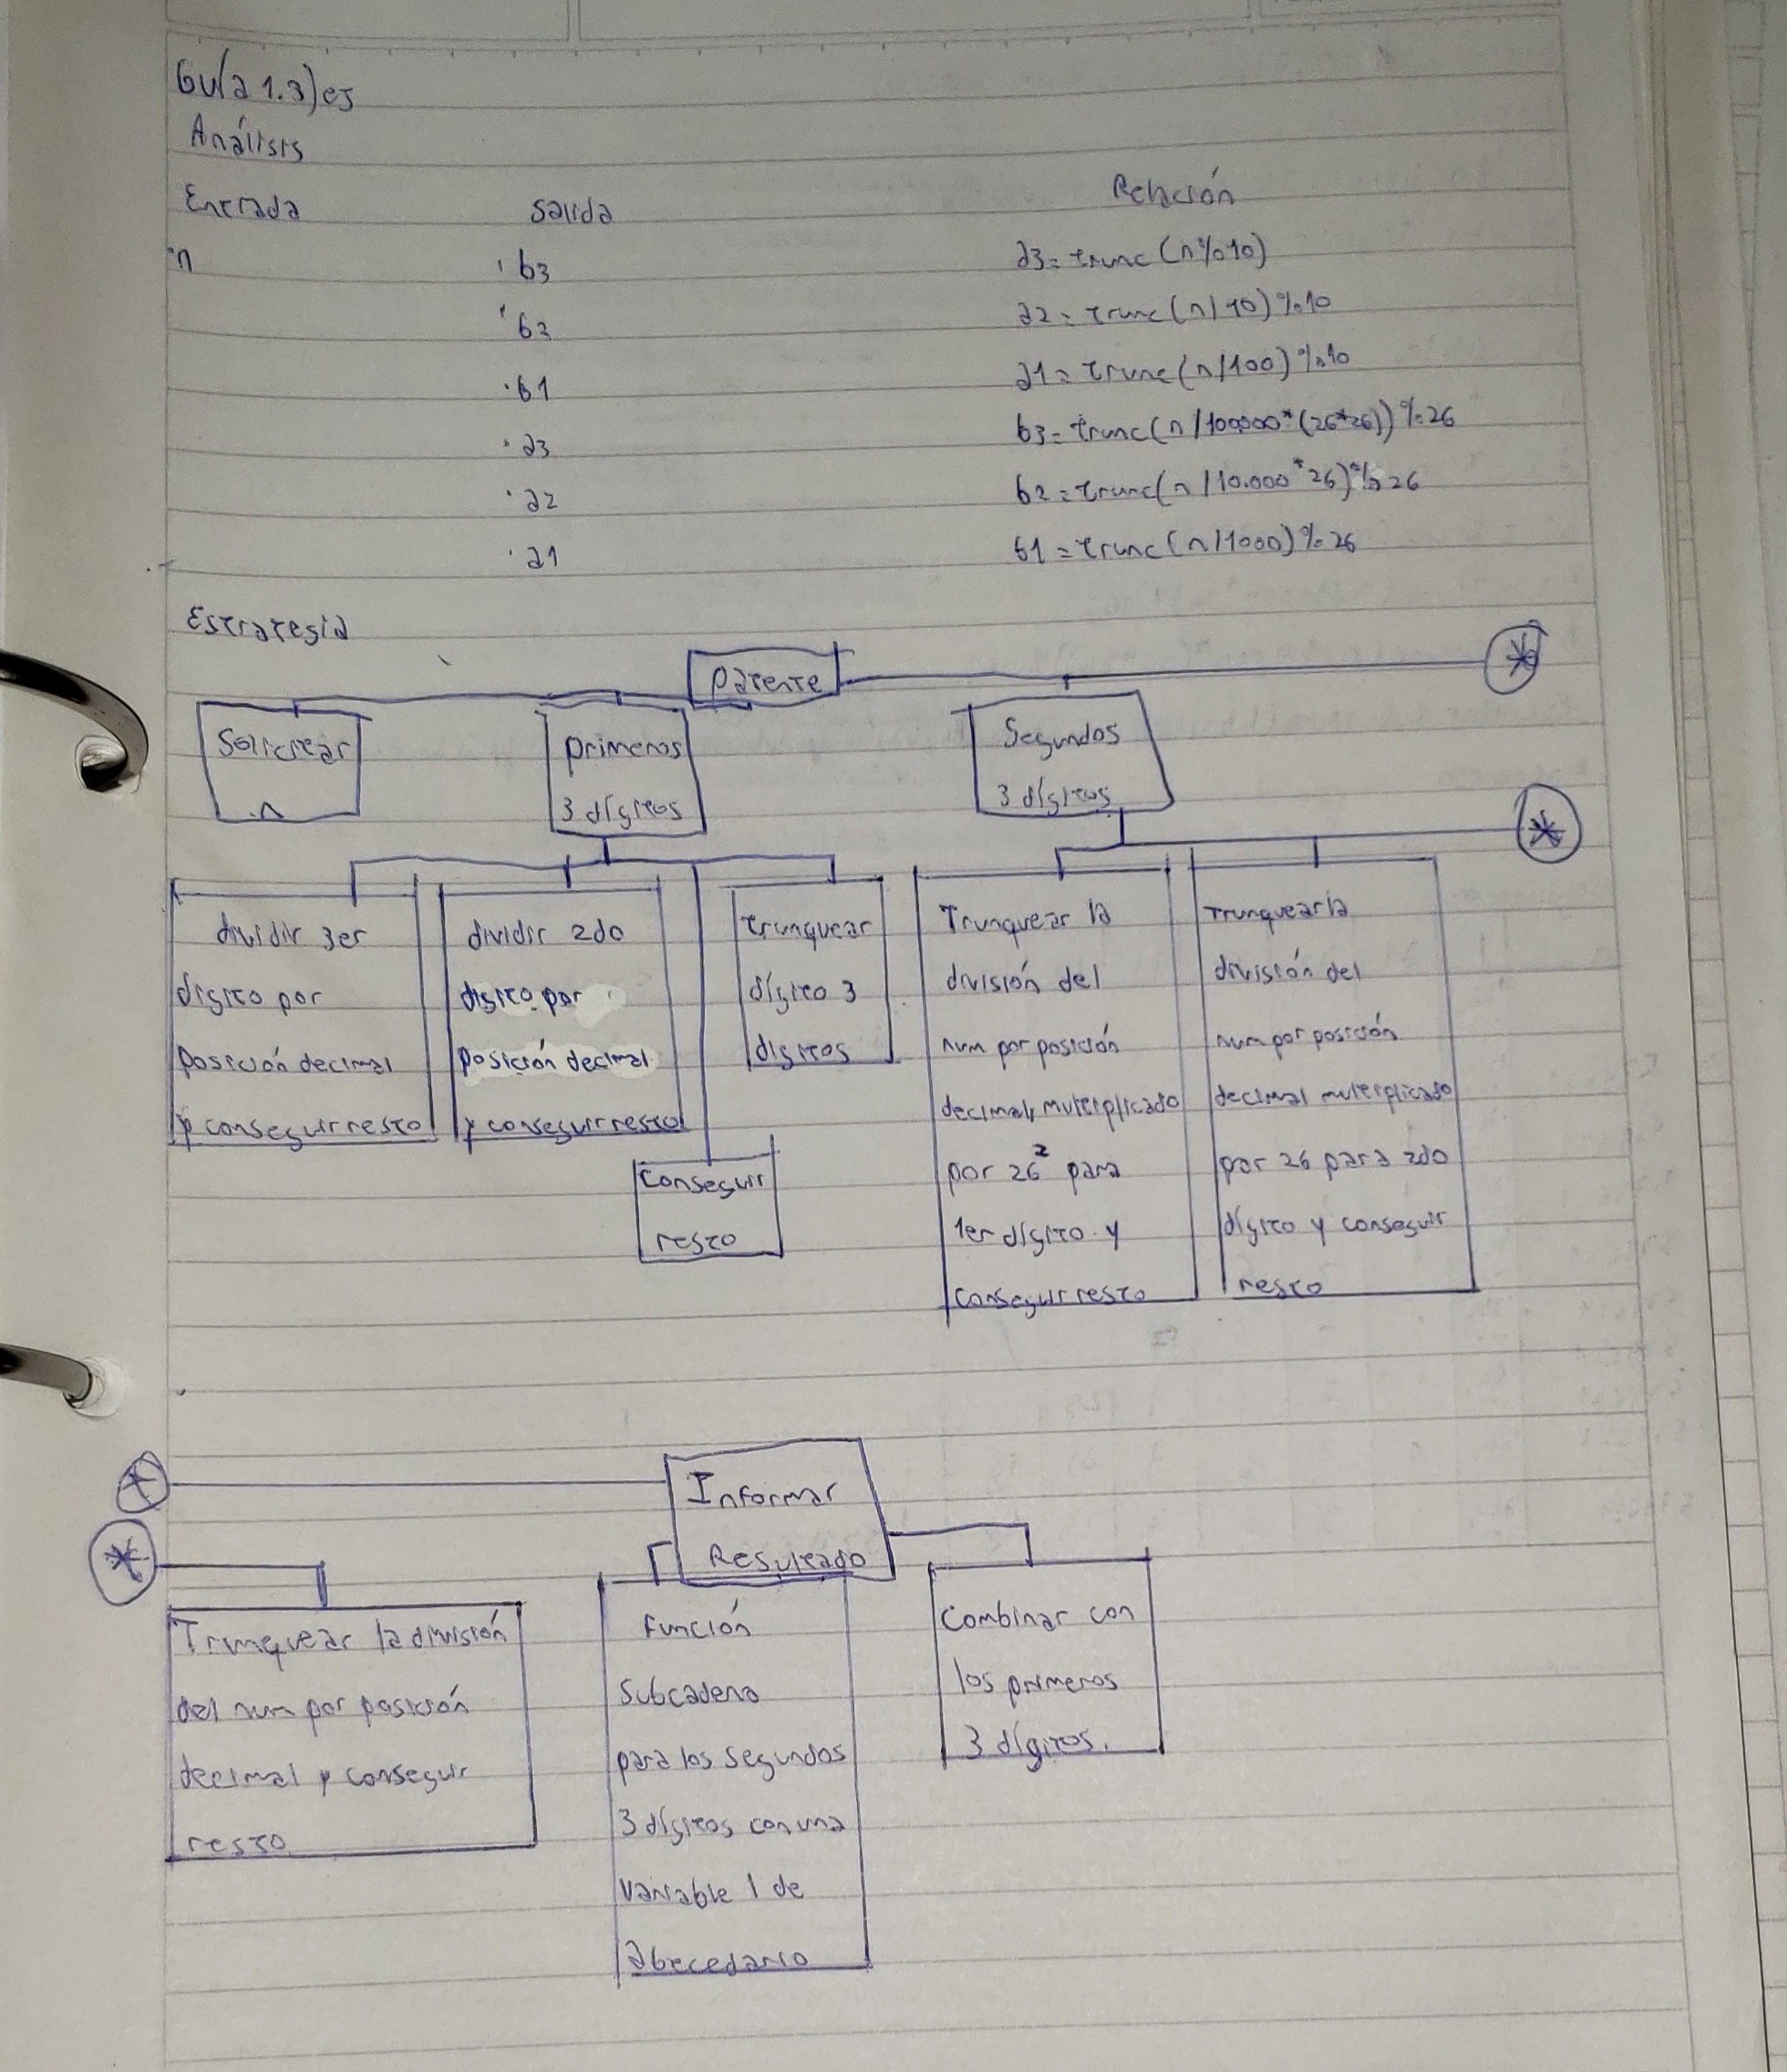 Guía 1.3) ej
Análisis
Entrada Salida Relación
n b3 a3= trunc (n%10)
b2 a2= trunc(n/10)%10
b1 a1= trunc(n/100)%10
a3 b3= trunc(n/100000*(26*26))%26
a2 b2=trunc(n/10.000*26)%26
a1 b1=trunc(n/1000)%26
Estrategia
Patente
Solicitar
n
primeros
3 dígitos
Segundos
3 dígitos
dividir 3er
dígito por
posición decimal
y conseguir resto
dividir 2do
dígito por
posición decimal
y conseguir resto
Conseguir
resto
trunquear
dígito 3
dígitos
Trunquear la
división del
num por posición
decimal, multiplicado
por 26² para
1er dígito y
conseguir resto
Trunquear la
división del
num por posición
decimal multiplicado
por 26 para 2do
dígito y conseguir
resto
Informar
Resultado
Trunquear la división
del num por posición
decimal y conseguir
resto
Función
Subcadena
para los segundos
3 dígitos con una
variable l de
abecedario
Combinar con
los primeros
3 dígitos.